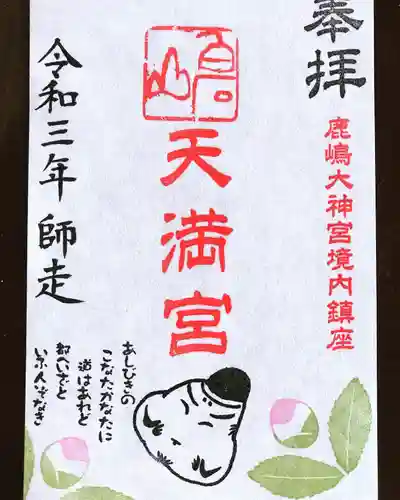 奉拝
鹿嶋大神宮境内鎮座
天満宮
令和三年 師走
あしびきの
こなたかなたに
道はあれど
都へいざと
いふ人ぞなき